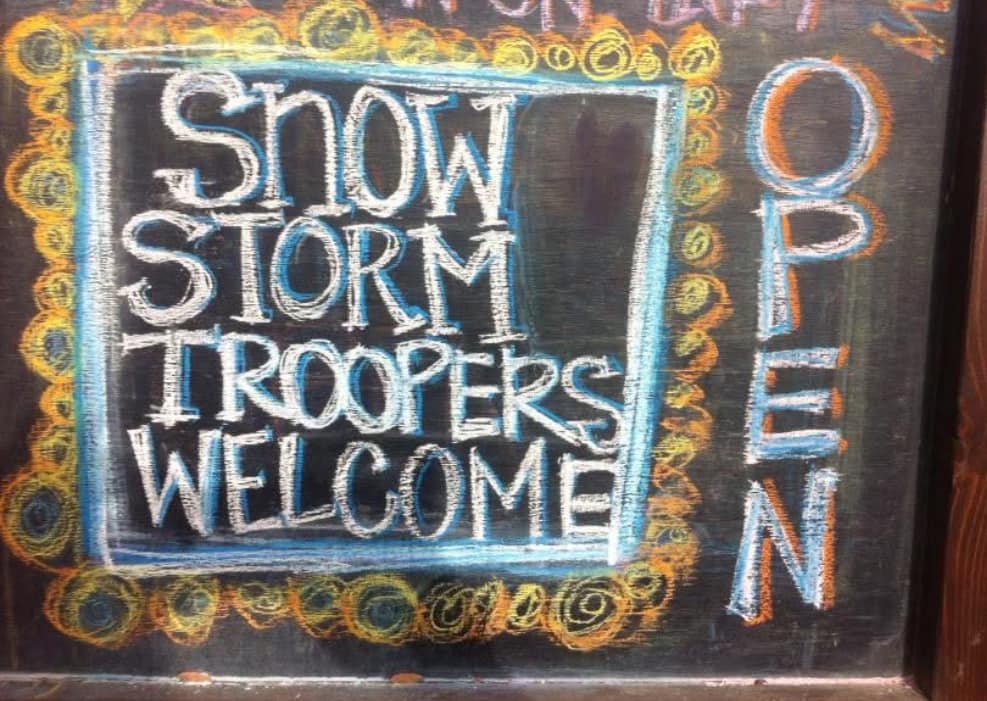 SnOW
STORM
TROOPERS
WELCOME
OPEN